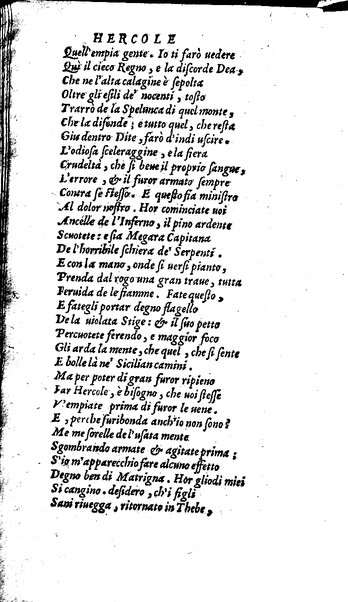 HERCOLE
Quell'empia gente. Io ti farò uedere
Quì il cieco Regno, e la discorde Dea,
Che ne l'alta calagine è sepolta
Oltre gli esili de' nocenti, tosto
Trarrò de la Spelunca di quel monte,
Che la difende; e tutto quel, che resta
Giu dentro Dite, farò d'indi uscire.
L'odiosa sceleraggine, e la fiera
Crudeltà, che si beue il proprio sangue,
L'errore, & il furor armato sempre
Contra se stesso. E questo fia ministro
Al dolor nostro. Hor cominciate uoi
Ancelle de l'Inferno, il pino ardente
Scuotete: e sia Megara Capitana
De l'horribile schiera de' Serpenti.
E con la mano, onde si uersi pianto,
Prenda dal rogo una gran traue, tutta
Feruida de le fiamme. Fate questo,
E fategli portar degno flagello
De la uiolata Stige: & il suo petto
Percuotete ferendo, e maggior foco
Gli arda la mente, che quel, che si sente
E bolle là ne' Sicilian camini.
Ma per poter di gran furor ripieno
Far Hercole, è bisogno, che uoi stesse
V'empiate prima di furor le uene.
E, perche furibonda anch'io non sono?
Me me sorelle de l'usata mente
Sgombrando armate & agitate prima;
S'io m'apparecchio fare alcuno effetto
Degno ben di Matrigna. Hor gli odi miei
Si cangino. desidero, ch'i figli
Sani riuegga, ritornato in Thebe,